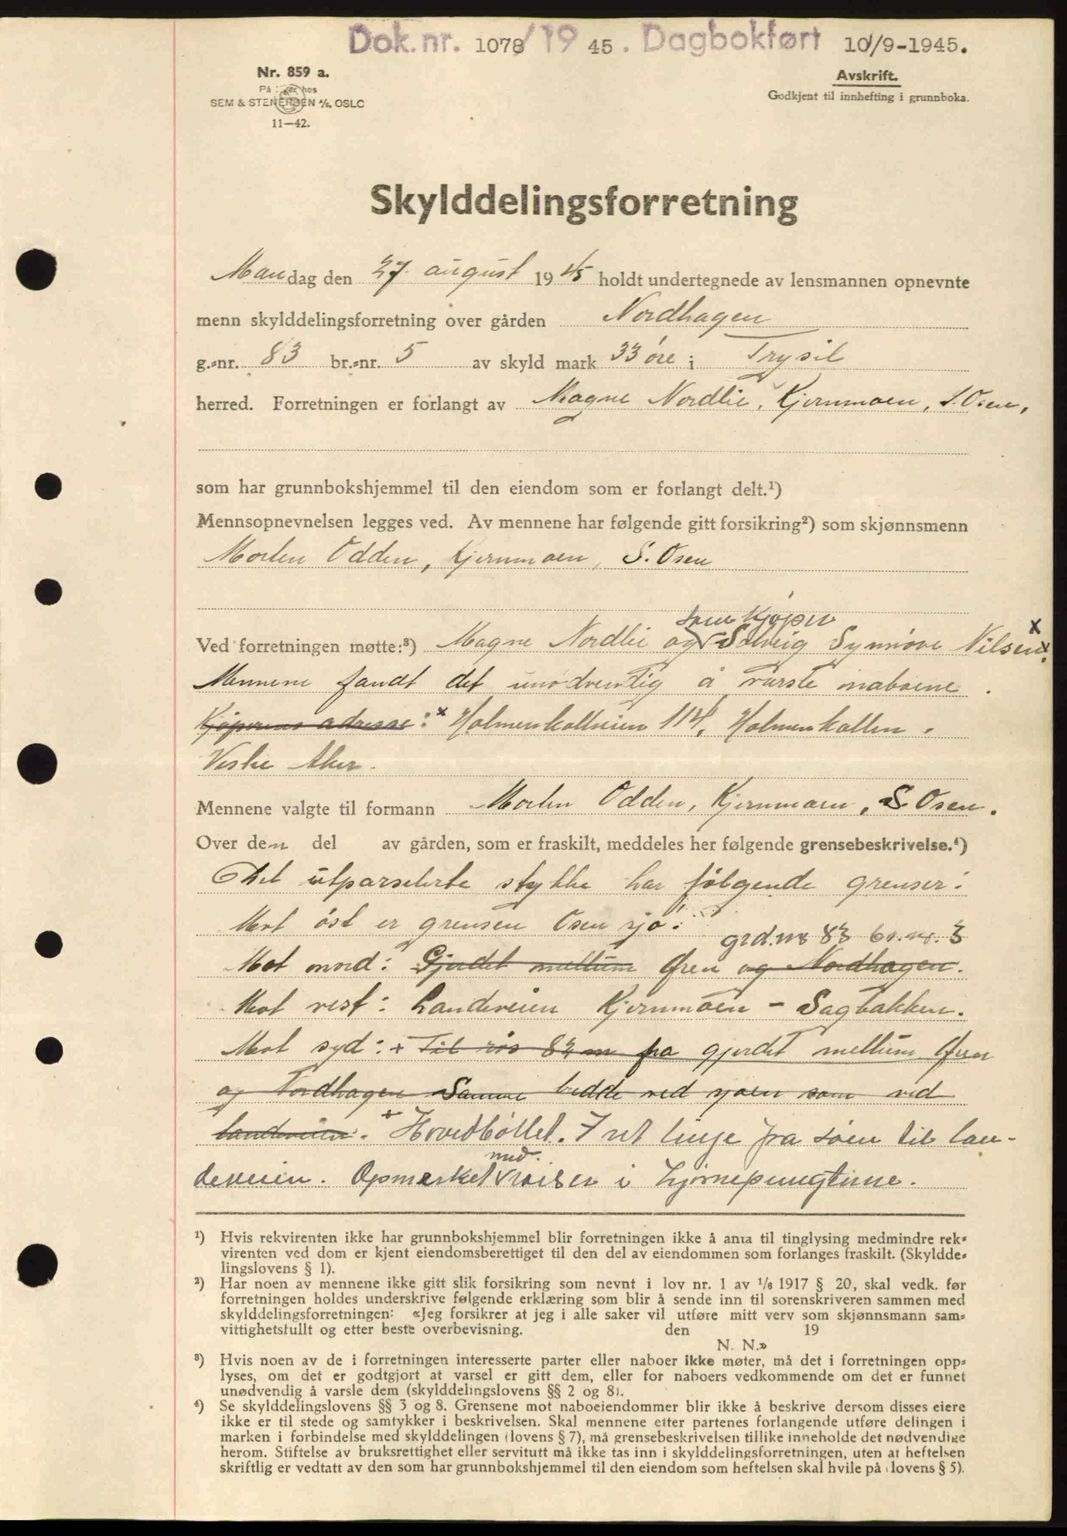 Dok.nr. 1078/19 45. Dagbokført 10/9-1945.
Nr. 859 a.
Avskrift.
SEM & STENERSEN A/S, OSLO
Godkjent til innhefting i grunnboka.
11—42.
Skylddelingsforretning
Mandag den 27 august 1945 holdt undertegnede av lensmannen opnevnte
menn skylddelingsforretning over gården Nordhagen
g.-nr. 83 br.-nr. 5 av skyld mark 33 øre i Trysil
herred. Forretningen er forlangt av Magne Nordlie, Kjernmoen, S. Osen,
som har grunnbokshjemmel til den eiendom som er forlangt delt.¹)
Mennsopnevnelsen legges ved. Av mennene har følgende gitt forsikring²) som skjønnsmenn
Morten Odden, Kjernmoen, S. Osen
som kjøper
Ved forretningen møtte:³) Magne Nordlie og Solveig Synnøve Nilsen. x
Mennene fandt det unødvendig å varsle naboene.
Kjøperens adresse: x Holmenkollveien 114, Holmenkollen,
Vestre Aker.
Mennene valgte til formann Morten Odden, Kjernmoen, S. Osen.
Over den del av gården, som er fraskilt, meddeles her følgende grensebeskrivelse.⁴)
Det utparselerte stykke har følgende grenser:
Mot øst er grensen Osen sjø:
grd.nr 83 br.nr. 3
Mot nord: Gjerdet mellum Øren og Nordhagen.
Mot vest: Landeveien Kjernmoen - Sagbakken.
Mot syd: + Til røs 83 m fra gjerdet mellum Øren
og Nordhagen Samme bredde ved sjøen som ved
landeveien. + Hovedbøllet. I ret linje fra søen til lan-
deveien. Opmerket med røiser i hjørnepungterne.
¹) Hvis rekvirenten ikke har grunnbokshjemmel blir forretningen ikke å anta til tinglysing medmindre rek-
virenten ved dom er kjent eiendomsberettiget til den del av eiendommen som forlanges fraskilt. (Skyldde-
lingslovens § 1).
²) Har noen av mennene ikke gitt slik forsikring som nevnt i lov nr. 1 av 1/6 1917 § 20, skal vedk. før
forretningen holdes underskrive følgende erklæring som blir å sende inn til sorenskriveren sammen med
skylddelingsforretningen: «Jeg forsikrer at jeg i alle saker vil utføre mitt verv som skjønnsmann sam-
vittighetsfullt og etter beste overbevisning. den 19
N. N.»
³) Hvis noen av de i forretningen interesserte parter eller naboer ikke møter, må det i forretningen opp-
lyses, om det er godtgjort at varsel er gitt dem, eller for naboers vedkommende om det er funnet
unødvendig å varsle dem (skylddelingslovens §§ 2 og 8).
⁴) Se skylddelingslovens §§ 3 og 8. Grensene mot naboeiendommer blir ikke å beskrive dersom disses eiere
ikke er til stede og samtykker i beskrivelsen. Skal mennene etter partenes forlangende utføre delingen i
marken i forbindelse med skylddelingen (lovens § 7), må grensebeskrivelsen tillike inneholde det nødvendige
herom. Stiftelse av bruksrettighet eller servitutt må ikke tas inn i skylddelingsforretningen, uten at heftelsen
skriftlig er vedtatt av den som har grunnbokshjemmel til den eiendom som heftelsen skal hvile på (lovens § 5).